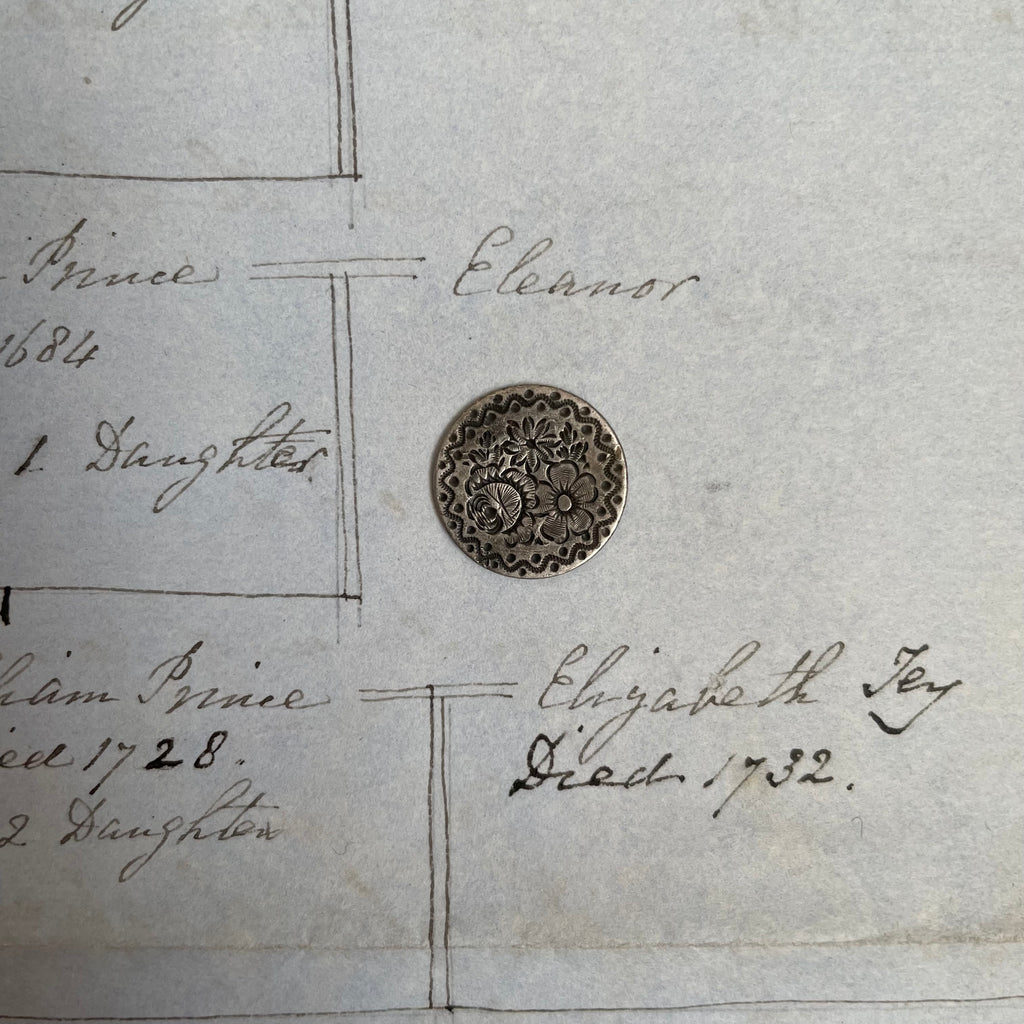 Prince Eleanor
1684
1 Daughter
ham Prince Elizabeth Tey
ed 1728. Died 1732.
2 Daughter